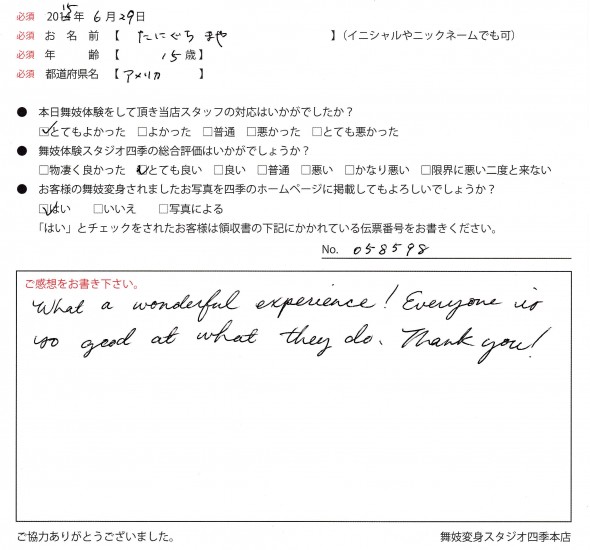 必須 2015年 6月29日
必須 お 名 前【 たにぐち まや 】(イニシャルやニックネームでも可)
必須 年　　齢【 15歳】
必須 都道府県名【 アメリカ 】
● 本日舞妓体験をして頂き当店スタッフの対応はいかがでしたか?
☑とてもよかった □よかった □普通 □悪かった □とても悪かった
● 舞妓体験スタジオ四季の総合評価はいかがでしょうか?
□物凄く良かった ☑とても良い □良い □普通 □悪い □かなり悪い □限界に悪い二度と来ない
● お客様の舞妓変身されましたお写真を四季のホームページに掲載してもよろしいでしょうか?
☑はい □いいえ □写真による
「はい」とチェックをされたお客様は領収書の下記にかかれている伝票番号をお書きください。
No. 058598
ご感想をお書き下さい。
What a wonderful experience! Everyone is
so good at what they do. Thank you!
ご協力ありがとうございました。 舞妓変身スタジオ四季本店